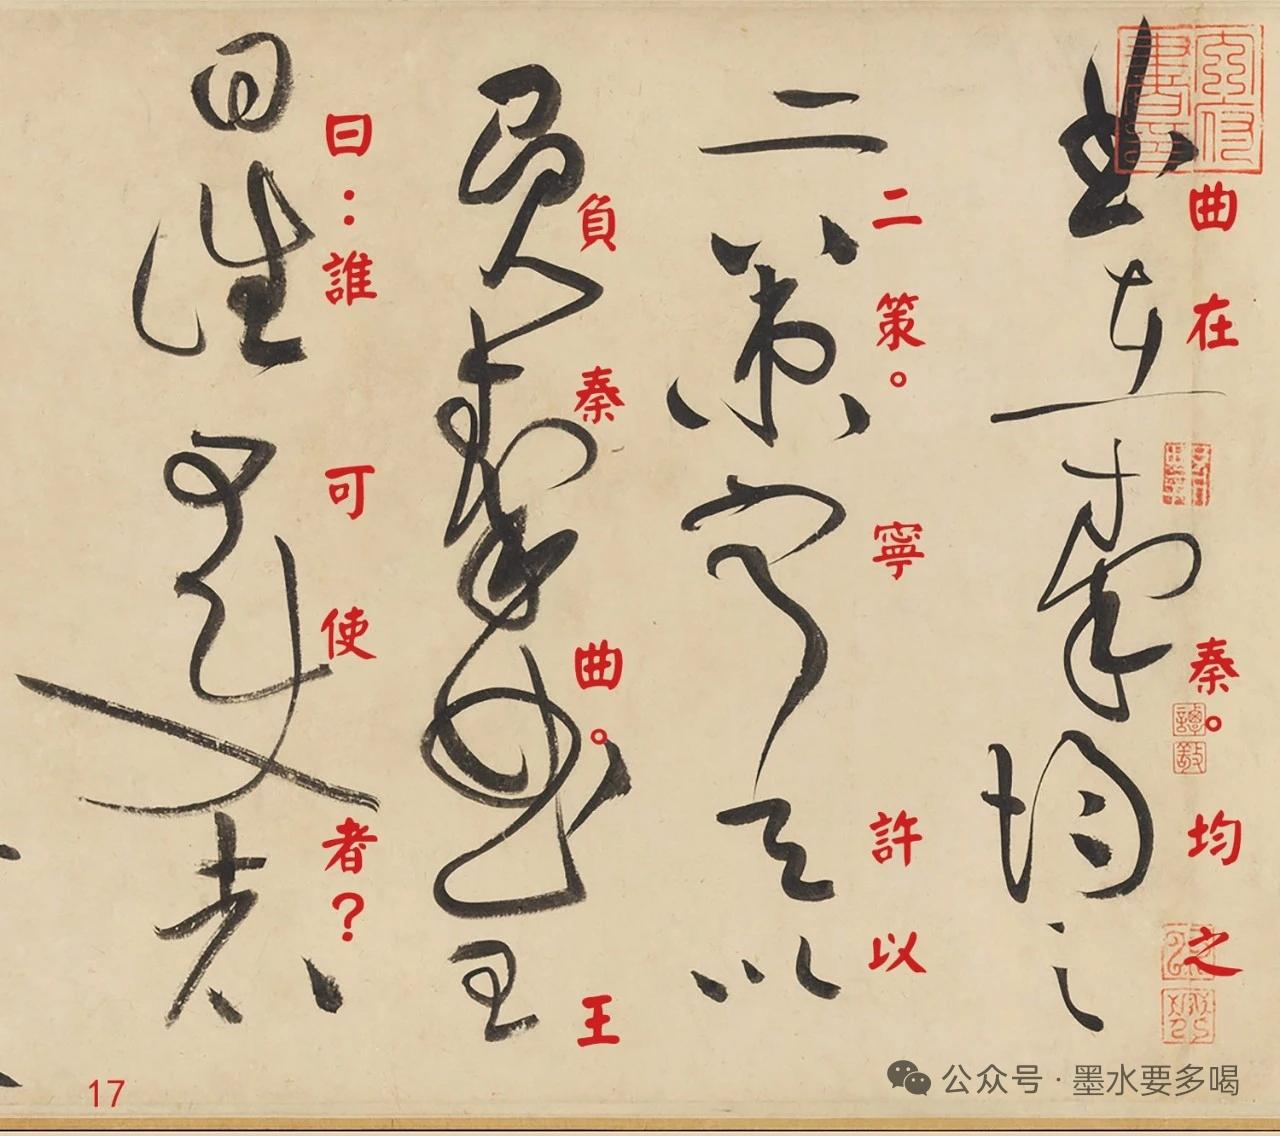 曲在秦。均之
二策。寧許以
負秦曲。王
曰：誰可使者？
17
公众号·墨水要多喝